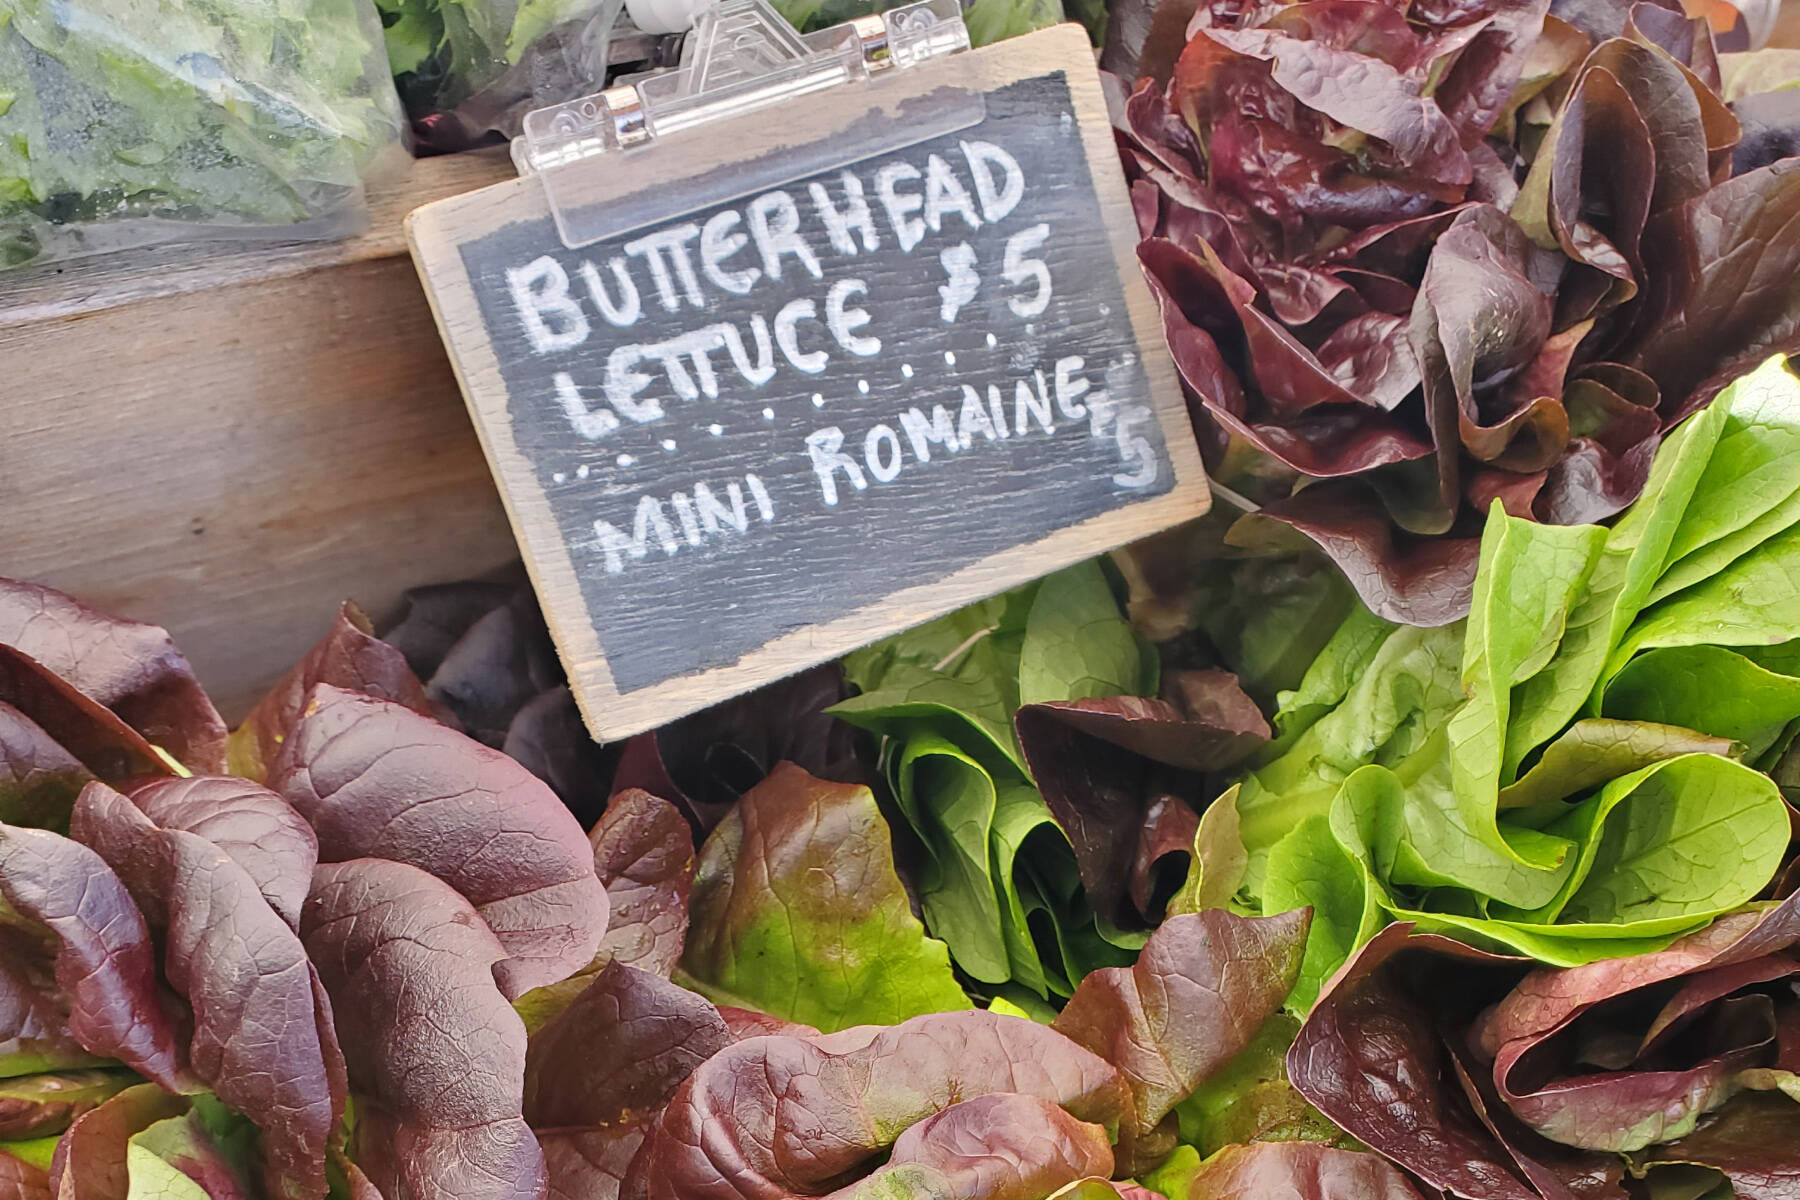 BUTTERHEAD
LETTUCE $5
MINI ROMAINE $5